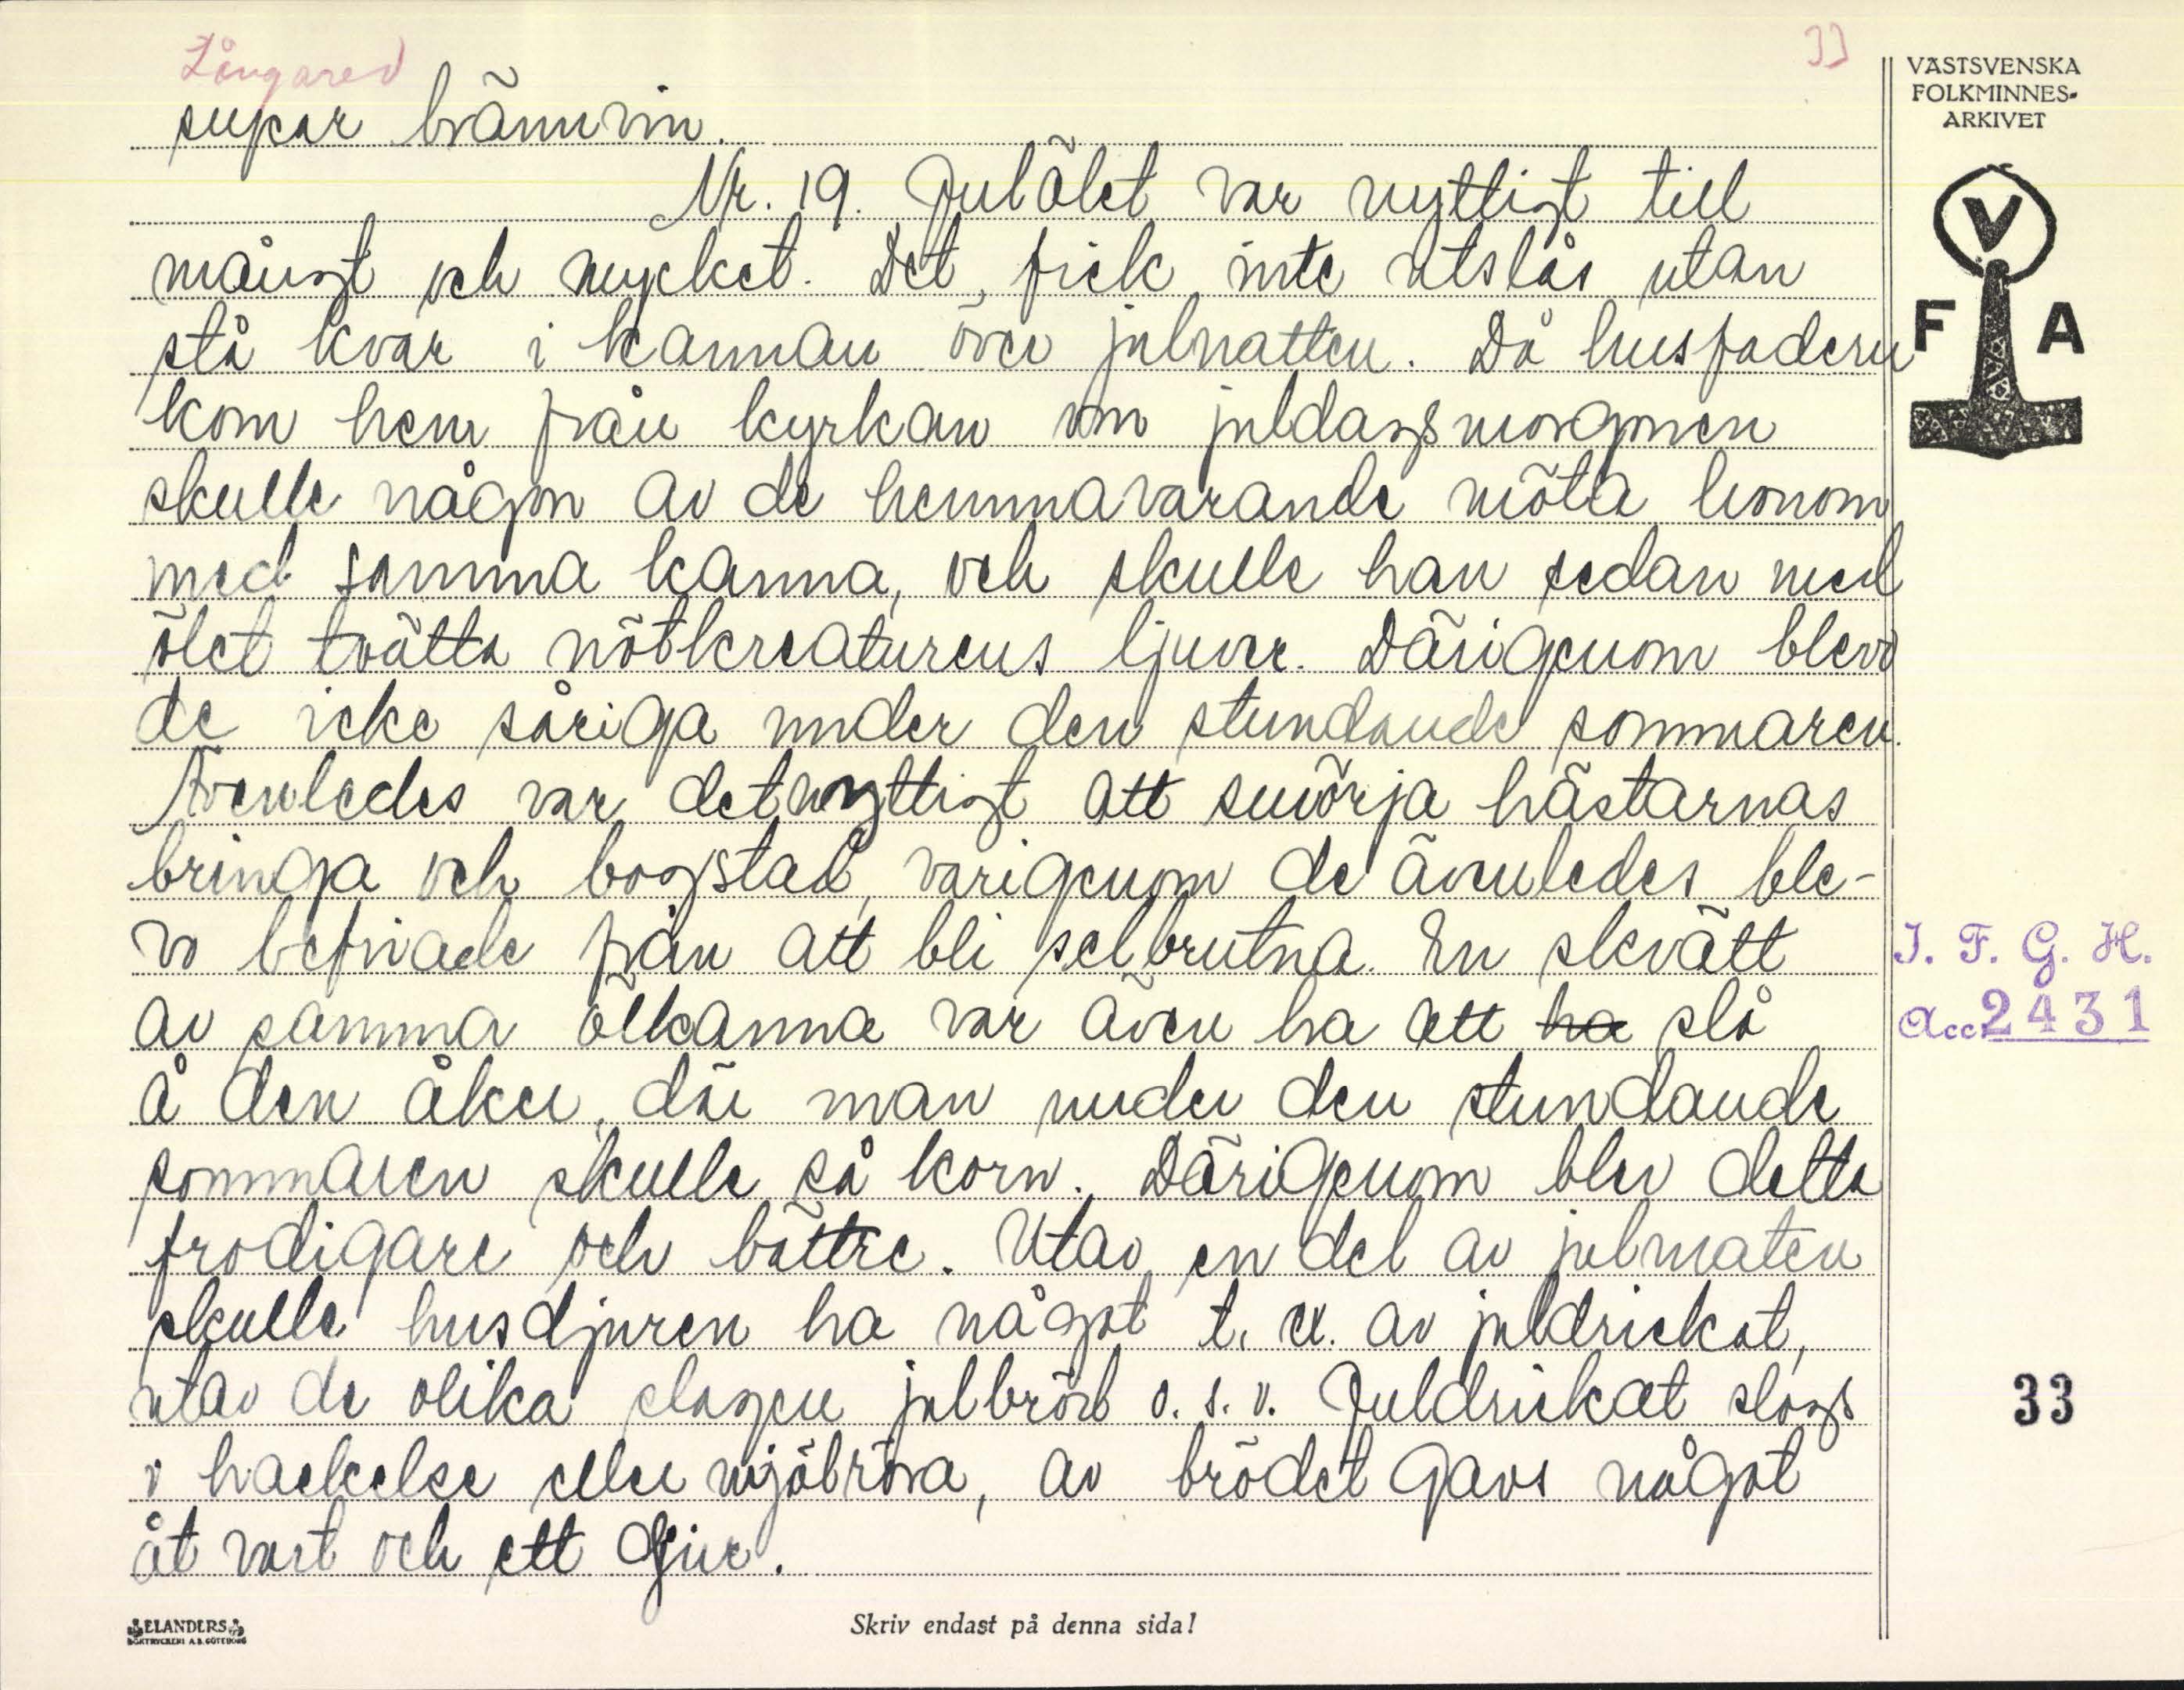 Långared
33
supar brännvin.
Nr. 19. Julölet var nyttigt till
mångt och mycket. Det fick inte utslås utan
stå kvar i kannan över julnatten. Då husfadern
kom hem från kyrkan om juldagsmorgonen
skulle någon av de hemmavarande möta honom
med samma kanna, och skulle han sedan med
ölet tvätta nötkreaturens ljuvver. Därigenom blevo
de icke såriga under den stundande sommaren.
Ävenledes var det nyttigt att smörja hästarnas
bringa och bogstad, varigenom de ävenledes ble-
vo befriade från att bli selbrutna. En skvätt
av samma ölkanna var även bra att ha slå
å den åker, där man under den stundande
sommaren skulle så korn. Därigenom blev detta
frodigare och bättre. Utav en del av julmaten
skulle husdjuren ha något t. ex. av juldrickat,
utav de olika slagen julbröd o. s. v. Juldrickat slogs
i hackelse eller mjölröra, av brödet gavs något
åt vart och ett djur.
VÄSTSVENSKA
FOLKMINNES-
ARKIVET
V
F A
I. F. G. H.
Acc. 2431
33
ELANDERS
BOKTRYCKERI A.B. GÖTEBORG
Skriv endast på denna sida!